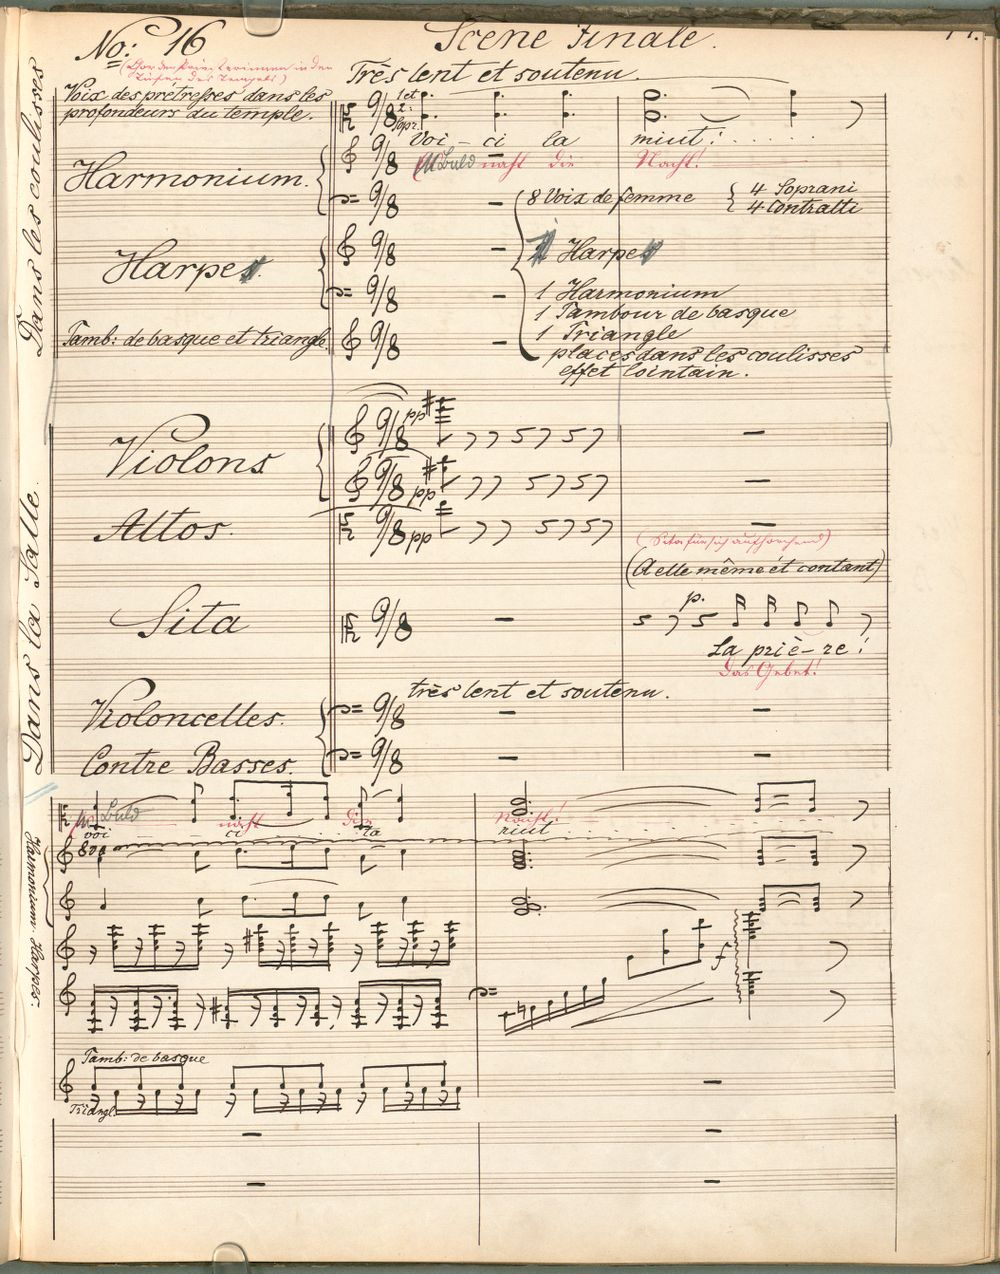 No: 16
Scene Finale.
(Chor der Priesterinnen in den
Tiefen des Tempels)
Très lent et soutenu
Dans les coulisses
Voix des prêtresses dans les
profondeurs du temple.
1 et
2:
Sopr:
9/8
Voi - ci la nuit! . . . .
Bald naht die Nacht!
Harmonium.
9/8
9/8
8 Voix de femme
4 Soprani
4 Contralti
Harpe
9/8
9/8
Harpe
1 Harmonium
1 Tambour de basque
1 Triangle
placés dans les coulisses
effet lointain.
Tamb: de basque et triangl.
9/8
Dans la Salle.
Violons
9/8 pp
9/8 pp
Altos.
9/8 pp
(Sita für sich aufhorchend)
(A elle même et contant)
Sita
9/8
p.
La priè - re!
Das Gebet!
très lent et soutenu.
Violoncelles.
9/8
Contre Basses.
9/8
Bald naht die Nacht!
voi ci la nuit
8va
Harmonium.
Harpes.
f
Tamb: de basque
Triangl.